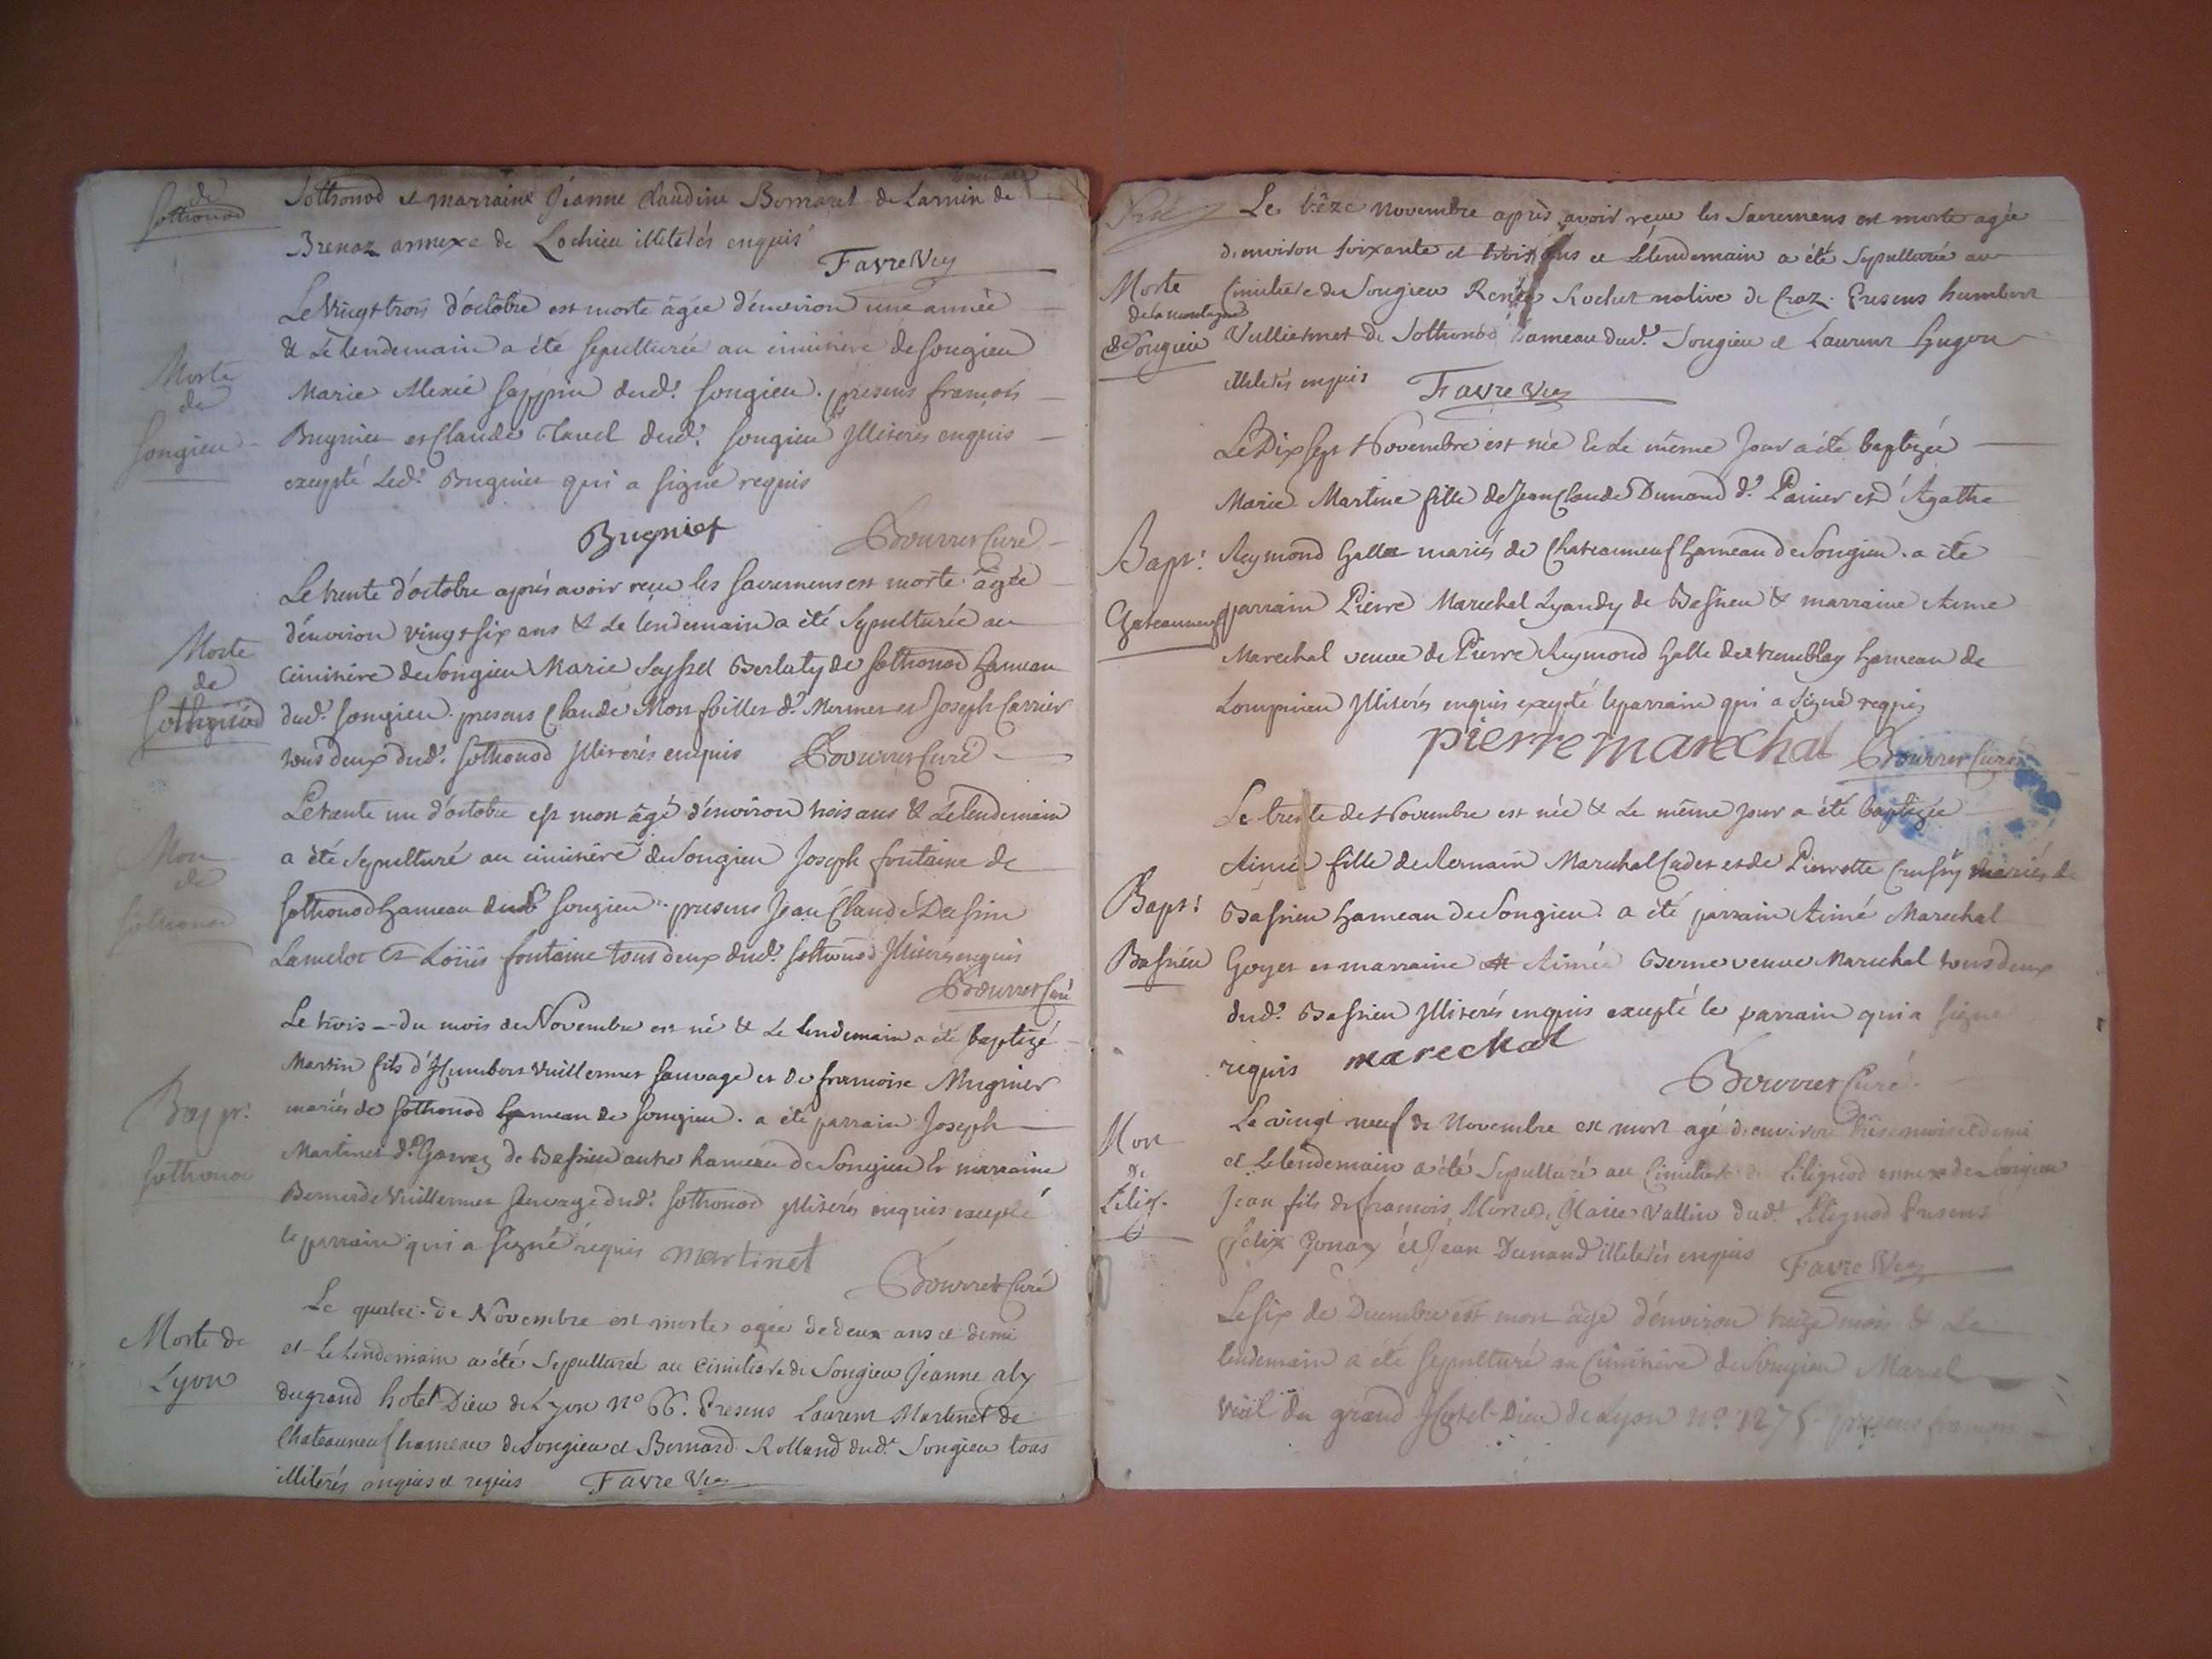 de
Sothonod
Sothonod et marraine Jeanne Claudine Bornarel de Lamin de
Brenaz annexe de Lochieu illiterés enquis
Favre Vic
Le Vingt trois d'octobre est morte âgée d'environ une année
& Le lendemain a été sepulturée au cimitiére de Songieu
Morte
de
Songieu
Marie Alexié Seppin dud.t Songieu. presens françois
Bugniet et Claude Clarel dud.t Songieu Illiterés enquis
excepté Led.t Bugniet qui a signé requis
Bugniet
Bourret Curé
Le trente d'octobre après avoir reçu les sacremens est morte âgée
d'environ vingt six ans & Le lendemain a été Sepulturée au
Morte
de
Sothonod
Cimitière de Songieu Marie Seyssel Berlaty de Sothonod hameau
dud.t Songieu. presens Claude Monfoillet d.t Mermet et Joseph Carrier
tous deux dud.t Sothonod Illiterés enquis Bourret Curé
Le trente un d'octobre est mort âgé d'environ trois ans & Le lendemain
Mort
de
Sothonod
a été Sepulturé au cimitière de Songieu Joseph fontaine de
Sothonod hameau dud.t Songieu. presens Jean Claude Dassin
Lamelot et Loüis fontaine tous deux dud.t Sothonod Illiterés enquis
Bourret Curé
Le trois du mois de Novembre est né & Le lendemain a été baptizé
Martin fils d'Humbert Vuillermet Sauvage et de françoise Mugnier
Bapt.
Sothonod
mariés de Sothonod hameau de Songieu. a été parrain Joseph
Martinet d.t de Bassieu autre hameau de Songieu & marraine
Bernarde Vuillermet Sauvage dud.t Sothonod Illiterés enquis excepté
le parrain qui a signé requis martinet
Bourret Curé
Morte de
Lyon
Le quatre de Novembre est morte agée de deux ans et demi
et Le lendemain a été Sepulturée au Cimitiere de Songieu Jeanne aly
du grand hotel Dieu de Lyon n° 66. Presens Laurent Martinet de
Chateauneuf hameau de Songieu et Bernard Rolland dud.t Songieu tous
illiterés enquis et requis Favre Vic
Le trèze novembre après avoir reçu les Sacremens est morte agée
d'environ soixante et trois ans et Le lendemain a été Sepulturée au
Morte
de la montagne
de Songieu
Cimitiére de Songieu Renée Rochet native de Craz. Presens humbert
Vulliermet de Sothonod hameau dud.t Songieu et Laurent Hugon
illiterés enquis Favre Vic
Le Dix Sept Novembre est née & Le même Jour a été baptizée
Marie Martine fille de Jean Claude Dunand d.t Panier et d'Agathe
Bapt.
Chateauneuf
Reymond Galle mariés de Chateauneuf hameau de Songieu. a été
parrain Pierre Marechal Lyandy de Bassieu & marraine Aime
Marechal veuve de Pierre Reymond Galle de tremblay hameau de
Lompnieu Illiterés enquis excepté le parrain qui a signé requis
pierre marechal Bourret Curé
Le trente de Novembre est née & Le même jour a été baptizée
Aimée fille de Marechal Cadet et de Pierrotte mariés de
Bapt.
Bassieu
Bassieu hameau de Songieu. a été parrain Aimé Marechal
Goyet et marraine Aimée Berne veuve Marechal tous deux
dud.t Bassieu Illiterés enquis excepté le parrain qui a signé
requis marechal
Bourret Curé
Mort
de
Lilig.
Le vingt neuf de Novembre est mort agé d'environ et demi
et Le lendemain a été Sepulturé au Cimitiere de Lilignod annexe de Songieu
Jean fils de françois et de Marie Vallin dud.t Lilignod Presens
felix Gonay et Jean Dunand illiterés enquis Favre Vic
Le six de Decembre est mort âgé d'environ treize mois & Le
lendemain a été sepulturé au Cimitière de Songieu Marcel
du grand Hotel-Dieu de Lyon n° 1275. presens françois